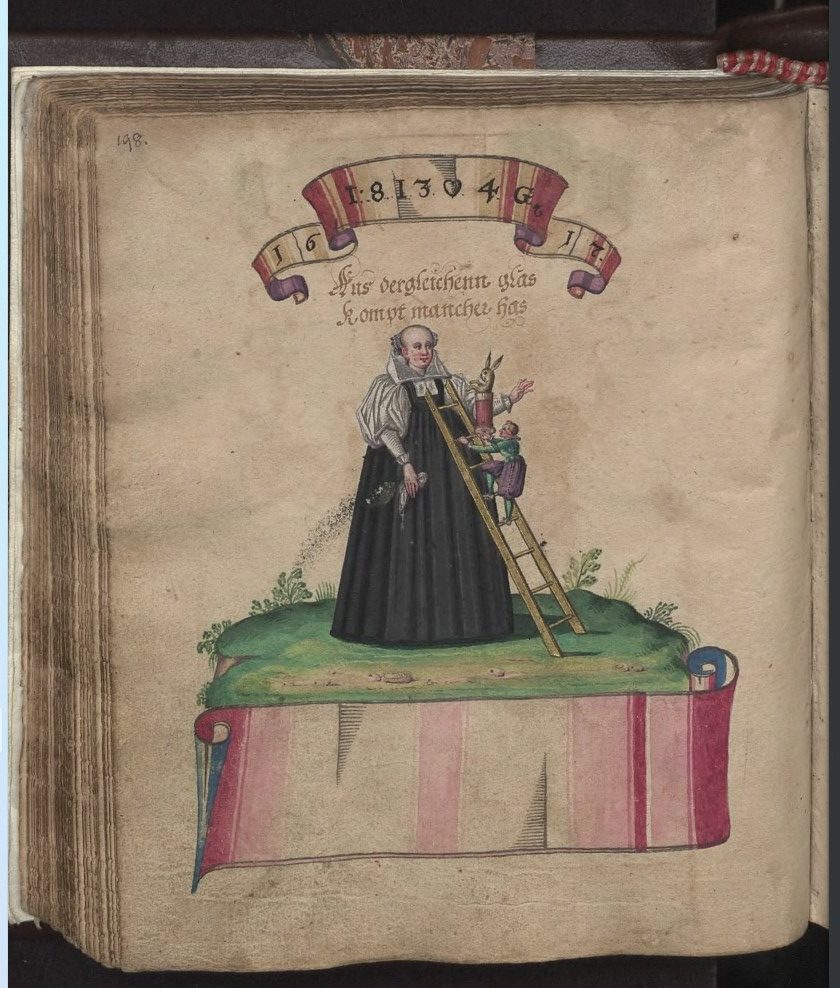 198.
1:8.13 ♥ 4. G.
16 17.
Aus dergleichenn glas
kompt mancher has